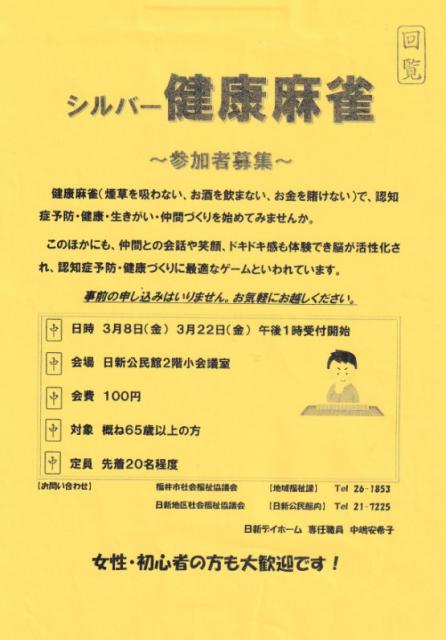 回覧
シルバー健康麻雀
～参加者募集～
健康麻雀(煙草を吸わない、お酒を飲まない、お金を賭けない)で、認知
症予防・健康・生きがい・仲間づくりを始めてみませんか。
このほかにも、仲間との会話や笑顔、ドキドキ感も体験でき脳が活性化さ
れ、認知症予防・健康づくりに最適なゲームといわれています。
事前の申し込みはいりません。お気軽にお越しください。
中 日時 3月8日(金) 3月22日(金) 午後1時受付開始
中 会場 日新公民館2階小会議室
中 会費 100円
中 対象 概ね65歳以上の方
中 定員 先着20名程度
【お問い合わせ】 福井市社会福祉協議会 【地域福祉課】 Tel 26-1853
日新地区社会福祉協議会 【日新公民館内】 Tel 21-7225
日新デイホーム 専任職員 中嶋安希子
女性・初心者の方も大歓迎です！